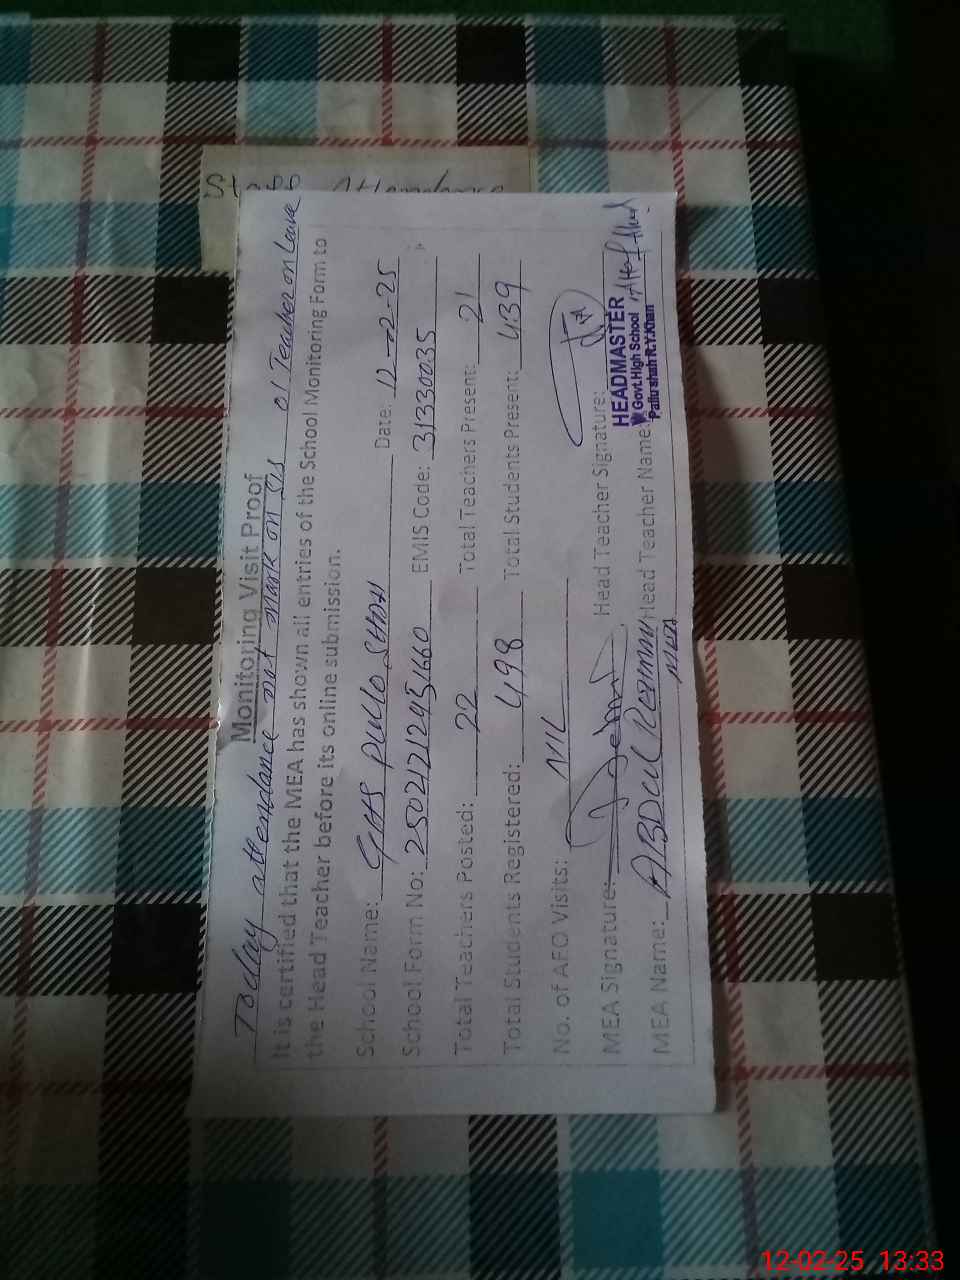 Staff Attendance
Monitoring Visit Proof
Today attendance not mark on sis 01 Teacher on Leave
It is certified that the MEA has shown all entries of the School Monitoring Form to
the Head Teacher before its online submission.
School Name: GHS PULLO SHAH Date: 12-02-25
School Form No: 25021212451660 EMIS Code: 31330035
Total Teachers Posted: 22 Total Teachers Present: 21
Total Students Registered: 498 Total Students Present: 439
No. of AEO Visits: NIL
MEA Signature: Head Teacher Signature:
MEA Name: ABDul Rehman Head Teacher Name:
MEA
HEADMASTER
Govt. High School
Pallu shah R.Y.Khan
12-02-25 13:33